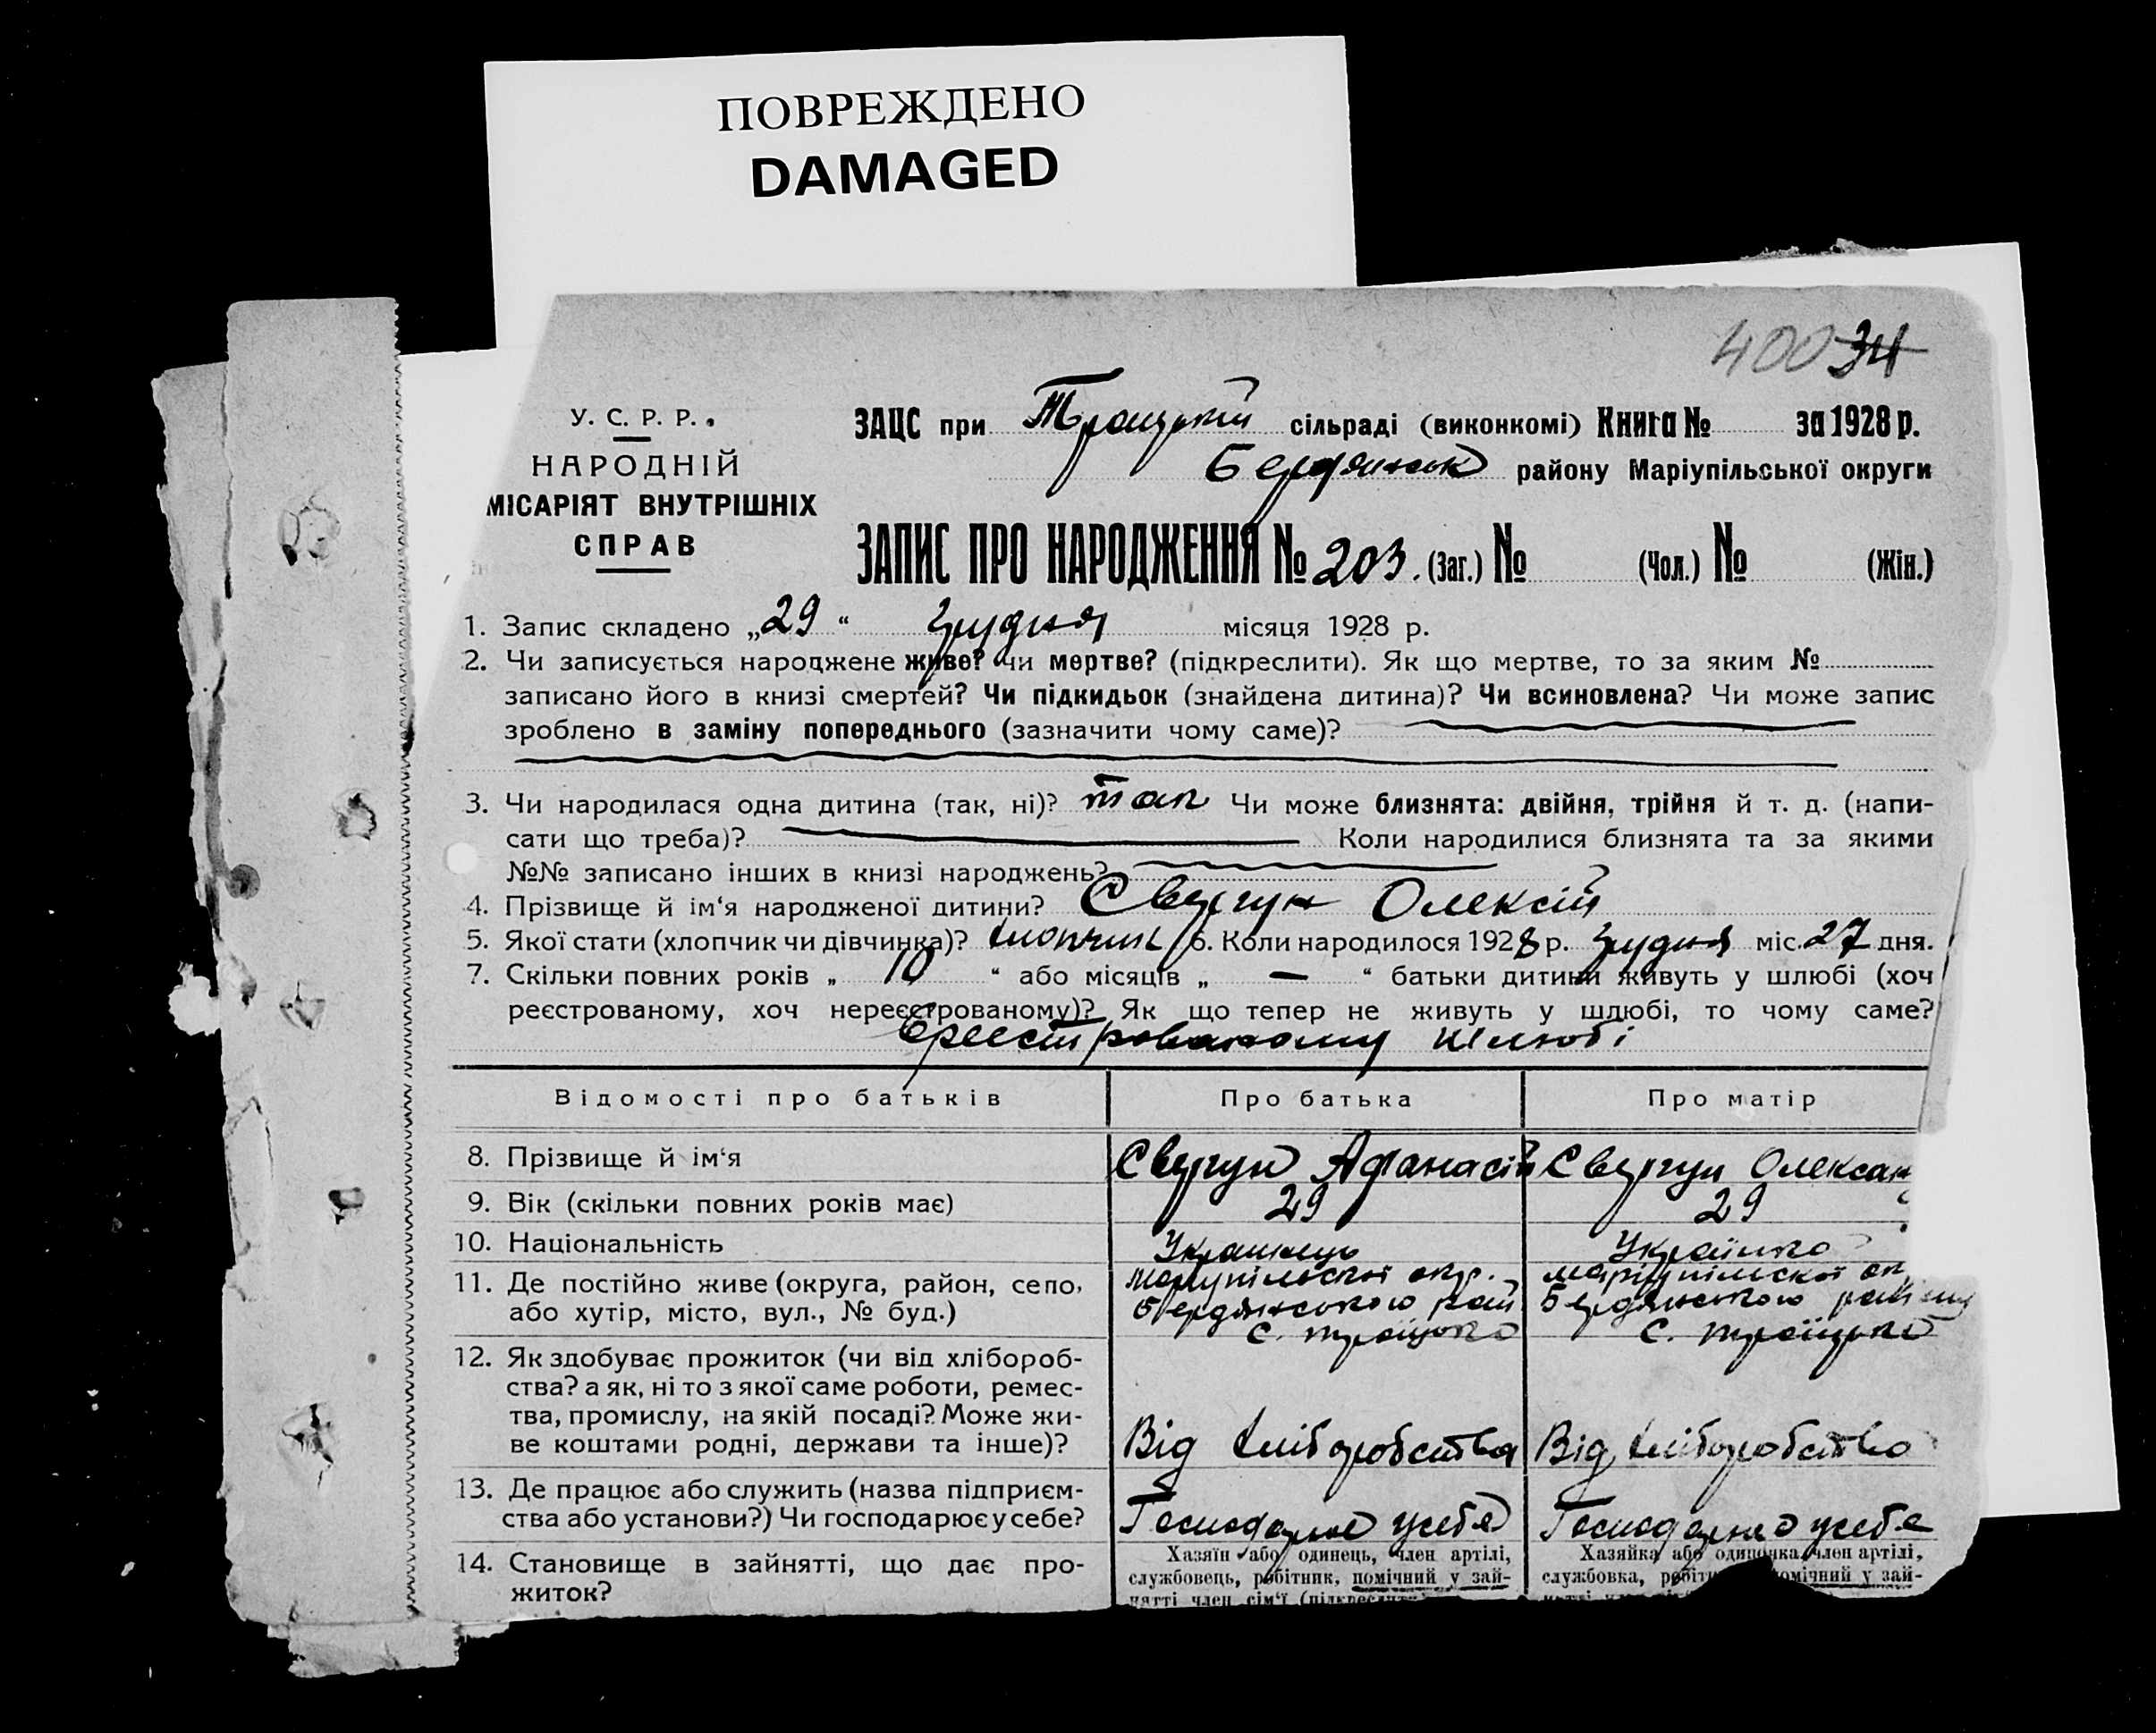 ПОВРЕЖДЕНО
DAMAGED
400 34
У. С. Р. Р.
НАРОДНІЙ
МІСАРІЯТ ВНУТРІШНІХ
СПРАВ
ЗАЦС при Троицькій сільраді (виконкомі) Книга № за 1928 р.
Бердянськ району Маріупільської округи
ЗАПИС ПРО НАРОДЖЕННЯ № 203. (Заг.) № (Чол.) № (Жін.)
1. Запис складено „29“ грудня місяця 1928 р.
2. Чи записується народжене живе? чи мертве? (підкреслити). Як що мертве, то за яким №
записано його в книзі смертей? Чи підкидьок (знайдена дитина)? Чи всиновлена? Чи може запис
зроблено в заміну попереднього (зазначити чому саме)?
3. Чи народилася одна дитина (так, ні)? так Чи може близнята: двійня, трійня й т. д. (напи-
сати що треба)? Коли народилися близнята та за якими
№№ записано інших в книзі народжень?
4. Прізвище й ім‘я народженої дитини? Свергун Олексій
5. Якої стати (хлопчик чи дівчинка)? хлопчик 6. Коли народилося 1928 р. грудня міс. 27 дня.
7. Скільки повних років „ 10 “ або місяців „ — “ батьки дитини живуть у шлюбі (хоч
реєстрованому, хоч нереєстрованому)? Як що тепер не живуть у шлюбі, то чому саме?
Вреестрованому шлюбі
Відомості про батьків Про батька Про матір
8. Прізвище й ім‘я Свергун Афанасій Свергун Олексан
9. Вік (скільки повних років має) 29 29
10. Національність Украинець Українка
11. Де постійно живе (округа, район, село, Маріупільскої окр. Маріупільскої ок
або хутір, місто, вул., № буд.) Бердянського рай Бердянського району
с. Троїцько с. Троїцько
12. Як здобуває прожиток (чи від хлібороб-
ства? а як, ні то з якої саме роботи, ремес-
тва, промислу, на якій посаді? Може жи-
ве коштами родні, держави та інше)? Від хліборобства Від хліборобства
13. Де працює або служить (назва підприєм-
ства або установи?) Чи господарює у себе? Господарює усебе Господарює усебе
14. Становище в зайнятті, що дає про-
житок?
Хазяїн або одинець, член артілі, Хазяйка або одиначка член артілі,
службовець, робітник, помічний у зай- службовка, робіт омічний у зай-
нятті член сім‘ї